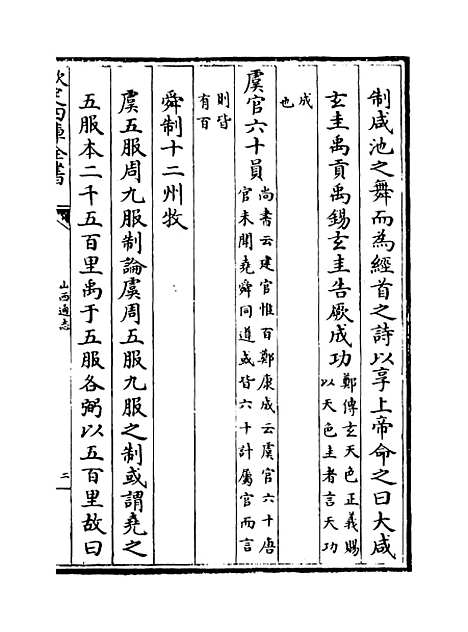 制咸池之舞而為經首之詩以享上帝命之曰大咸
玄圭禹貢禹錫玄圭告厥成功鄭傳玄天色正義賜
以天色圭者言天功
成
也
虞官六十員尚書云建官惟百鄭康成云虞官六十唐
官未聞堯舜同道或皆六十計屬官而言
則皆
有百
舜制十二州牧
虞五服周九服制論虞周五服九服之制或謂堯之
五服本二千五百里禹于五服各弼以五百里故曰
欽定四庫全書
山西通志
二